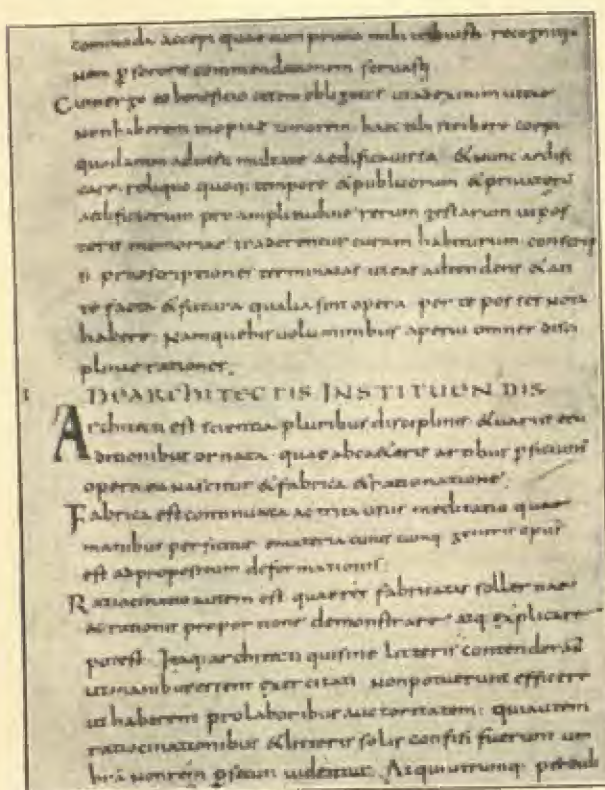 commoda accepi quae cum primo mihi tribuisti recogniti
nem ꝑ sororis commendationem servasti
Cum ergo eo beneficio essem obligatus ut ad exitum vitae
non haberem inopiae timorem haec tibi scribere coepi
quod animadverti multa te aedificavisse & nunc aedifi
care. reliquo quoq; tempore & publicorum & privatorum
aedificiorum pro amplitudine rerum gestarum ut pos
teris memoriae traderentur curam habiturum. conscrip
si praescriptiones terminatas ut eas adtendens & an
te facta & futura qualia sint opera per te posses nota
habere. Namque his voluminibus aperui omnes disci
plinae rationes.
I DE ARCHITECTIS INSTITUENDIS
Architecti est scientia pluribus disciplinis & variis eru
ditionibus ornata. quae ab ca&eris artibus ꝑficiunt
opera ea nascitur & fabrica & rationatione.
Fabrica est continuata ac trita usus meditatio quae
manibus perficitur e materia cuius cumq; generis opus
est ad propositum deformationis.
Ratiocinatio autem est quae res fabricatas sollertiae
ac rationis proportione demonstrare atq; explicare
potest. Itaq; architecti qui sine litteris contenderant
ut manibus essent exercitati non potuerunt efficere
ut haberent pro laboribus auctoritatem: qui autem
ratiocinationibus & litteris solis confisi fuerunt um
bram non rem ꝑsecuti videntur. At qui utrumq;